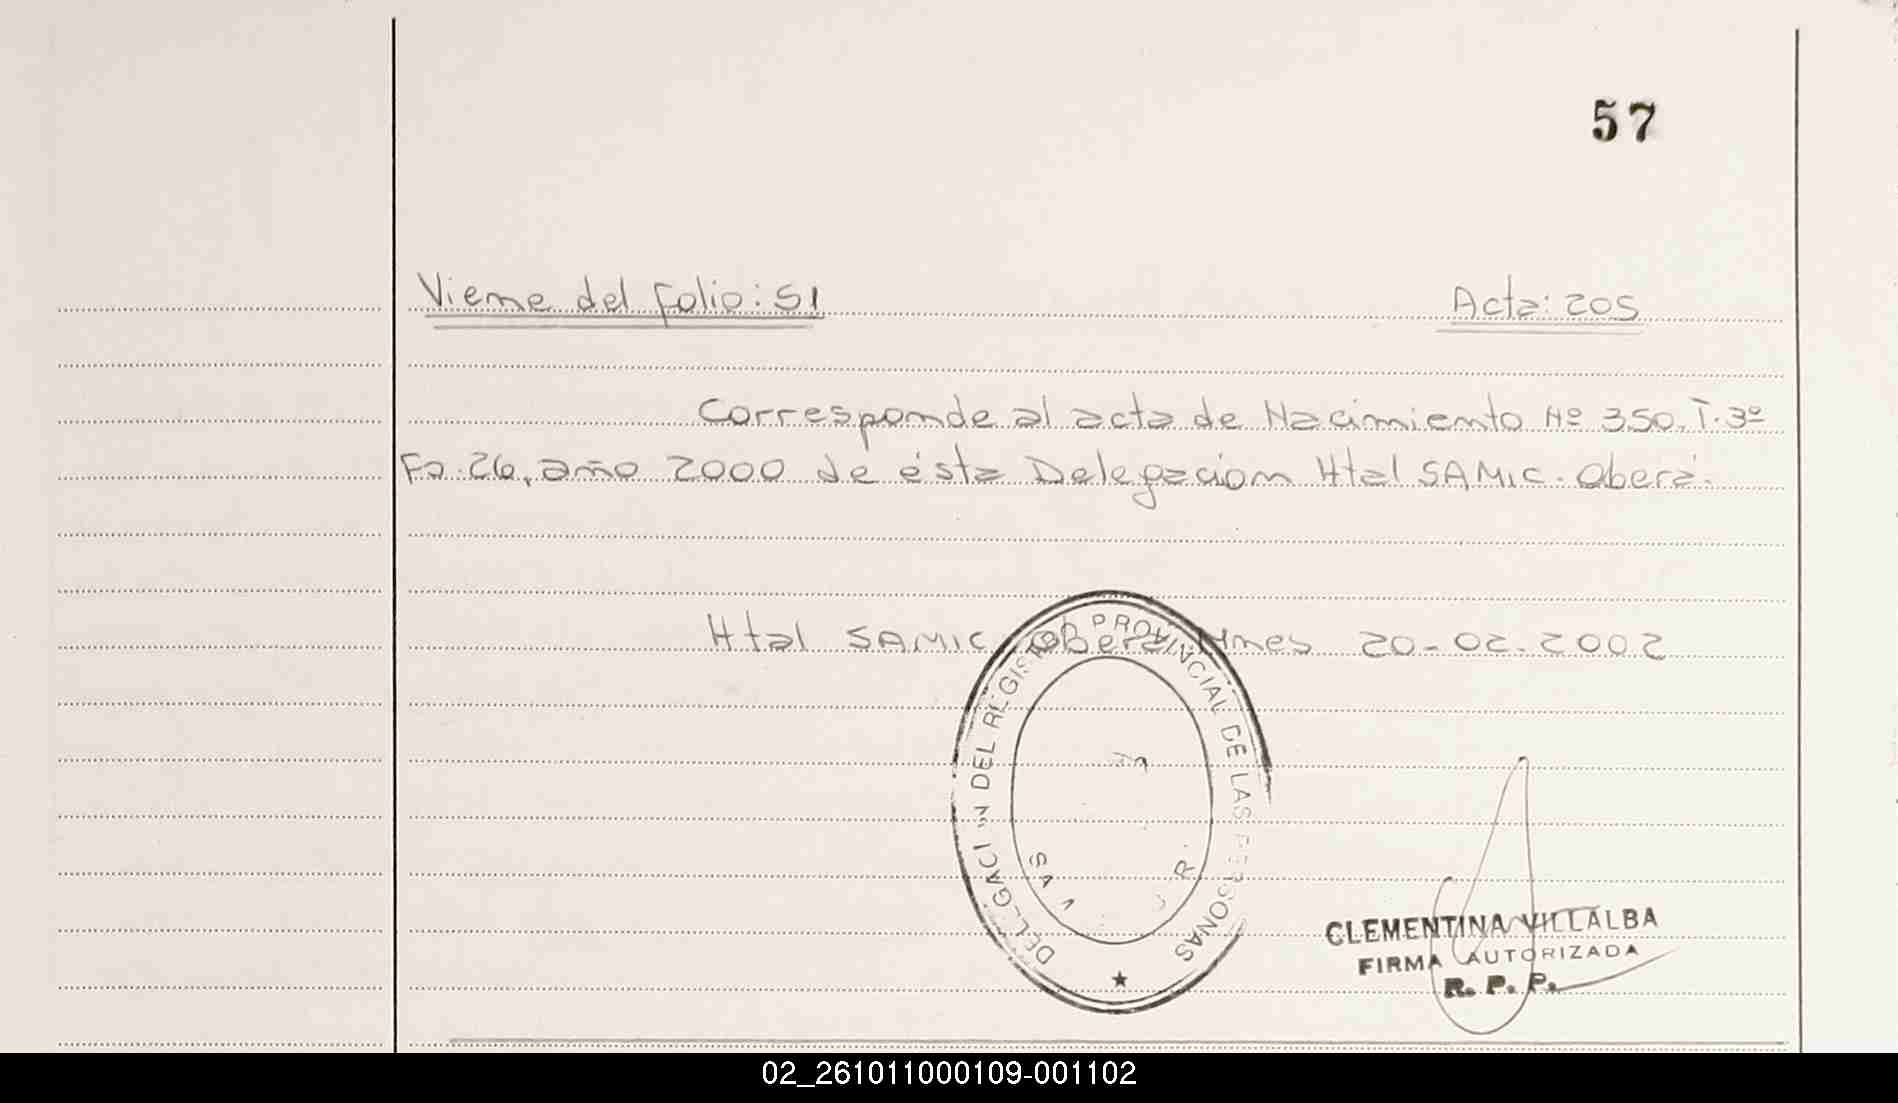 57
Viene del folio: 51
Acta: 205
Corresponde al acta de Nacimiento Nº 350. T. 3º
Fº. 26, año 2000 de ésta Delegación Htal SAMIC. Oberá.
Htal SAMIC Oberá Mnes 20-02-2002
DELEGACI N DEL REGISTRO PROVINCIAL DE LAS PERSONAS
CLEMENTINA VILLALBA
FIRMA AUTORIZADA
R. P. P.
02_261011000109-001102